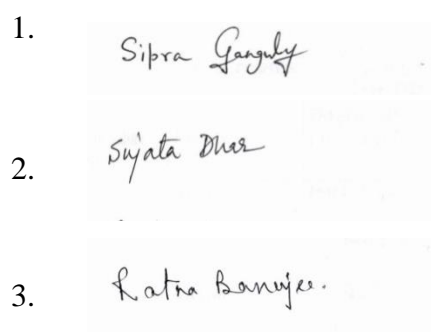 1. Sipra Ganguly
2. Sujata Dhar
3. Ratna Banerjee.